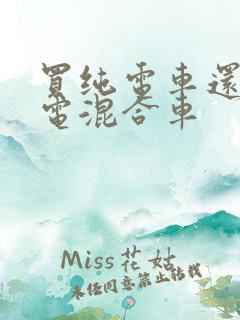 買純電車還
電混合車
Miss花姑
未经同意禁止转载